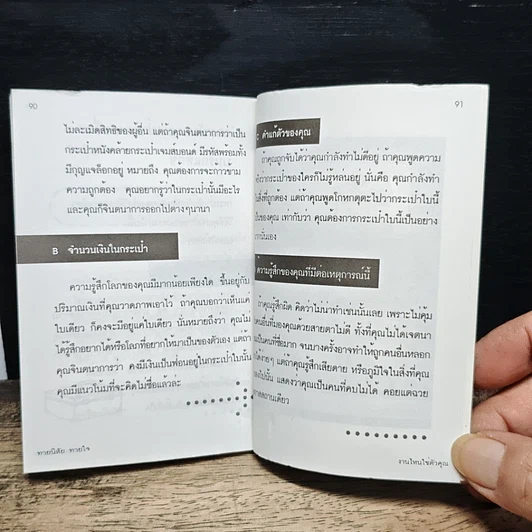 90
ไม่ละเมิดสิทธิของผู้อื่น แต่ถ้าคุณจินตนาการว่าเป็น
กระเป๋าหนังคล้ายกระเป๋าเจมส์บอนด์ มีรหัสพร้อมทั้ง
มีกุญแจล็อกอยู่ หมายถึง คุณต้องการจะก้าวข้าม
ความถูกต้อง คุณอยากรู้ว่าในกระเป๋านั้นมีอะไร
และคุณก็จินตนาการออกไปต่างๆนานา
B จำนวนเงินในกระเป๋า
ความรู้สึกโลภของคุณมีมากน้อยเพียงใด ขึ้นอยู่กับ
ปริมาณเงินที่คุณวาดภาพเอาไว้ ถ้าคุณบอกว่าเห็นแค่
ใบเดียว ก็คงจะมีอยู่แค่ใบเดียว นั่นหมายถึงว่า คุณไม่
ได้รู้สึกอยากได้หรือโลภที่อยากให้มาเป็นของตัวเอง แต่ถ้า
คุณจินตนาการว่า คงมีเงินเป็นฟ่อนอยู่ในกระเป๋าใบนั้น
คุณมีแนวโน้มที่จะคิดไม่ซื่อแล้วล่ะ
ทายนิสัย ทายใจ
91
คำแก้ตัวของคุณ
ถ้าคุณถูกจับได้ว่าคุณกำลังทำไม่ดีอยู่ ถ้าคุณพูดความ
ว่ากระเป๋าของใครก็ไม่รู้หล่นอยู่ นั่นคือ คุณกำลังทำ
ที่ถูกต้อง แต่ถ้าคุณพูดโกหกตุตะไปว่ากระเป๋าใบนี้
เป็นของคุณ เท่ากับว่า คุณต้องการกระเป๋าใบนี้เป็นอย่าง
นั่นเอง
ความรู้สึกของคุณที่มีต่อเหตุการณ์นี้
ถ้าคุณรู้สึกผิด คิดว่าไม่น่าทำเช่นนั้นเลย เพราะไม่คุ้ม
คนอื่นที่มองคุณด้วยสายตาไม่ดี ทั้งที่คุณไม่ได้เจตนา
เป็นคนที่ซื่อมาก จนบางครั้งอาจทำให้ถูกคนอื่นหลอก
ง่ายๆ แต่ถ้าคุณรู้สึกเสียดาย หรือภูมิใจในสิ่งที่คุณ
ไปนั้น แสดงว่าคุณเป็นคนที่คบไม่ได้ คอยแต่ฉวย
สถานเดียว
งานไหนใช่ตัวคุณ